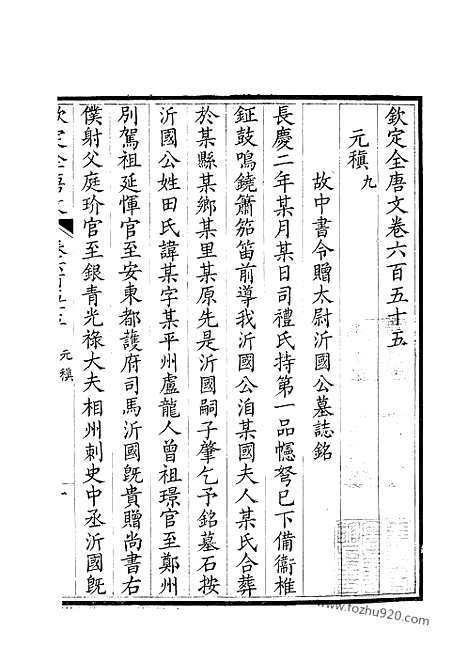 欽定全唐文卷六百五十五
元稹九
故中書令贈太尉沂國公墓誌銘
長慶二年某月某日司禮氏持第一品幰弩已下備衞椎
鉦鼓鳴鐃簫笳笛前導我沂國公洎某國夫人某氏合葬
於某縣某鄉某里某原先是沂國嗣子肇乞予銘墓石按
沂國公姓田氏諱某字某平州盧龍人曾祖璟官至鄭州
別駕祖延惲官至安東都護府司馬沂國既貴贈尚書右
僕射父庭玠官至銀青光祿大夫相州刺史中丞沂國既
欽定全唐文 元稹 一
www.fozhu920.com